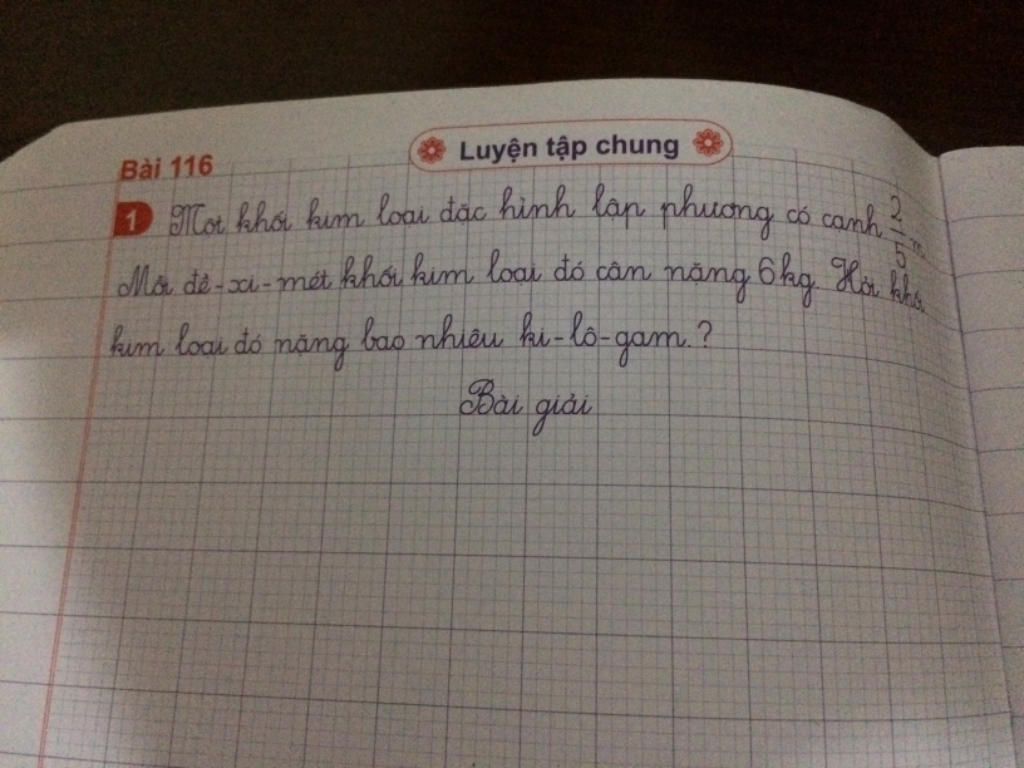 Bài 116
Luyện tập chung
1 Một khối kim loại đặc hình lập phương có cạnh 2/5 m.
Mỗi đề-xi-mét khối kim loại đó cân nặng 6kg. Hỏi khối
kim loại đó nặng bao nhiêu ki-lô-gam.?
Bài giải